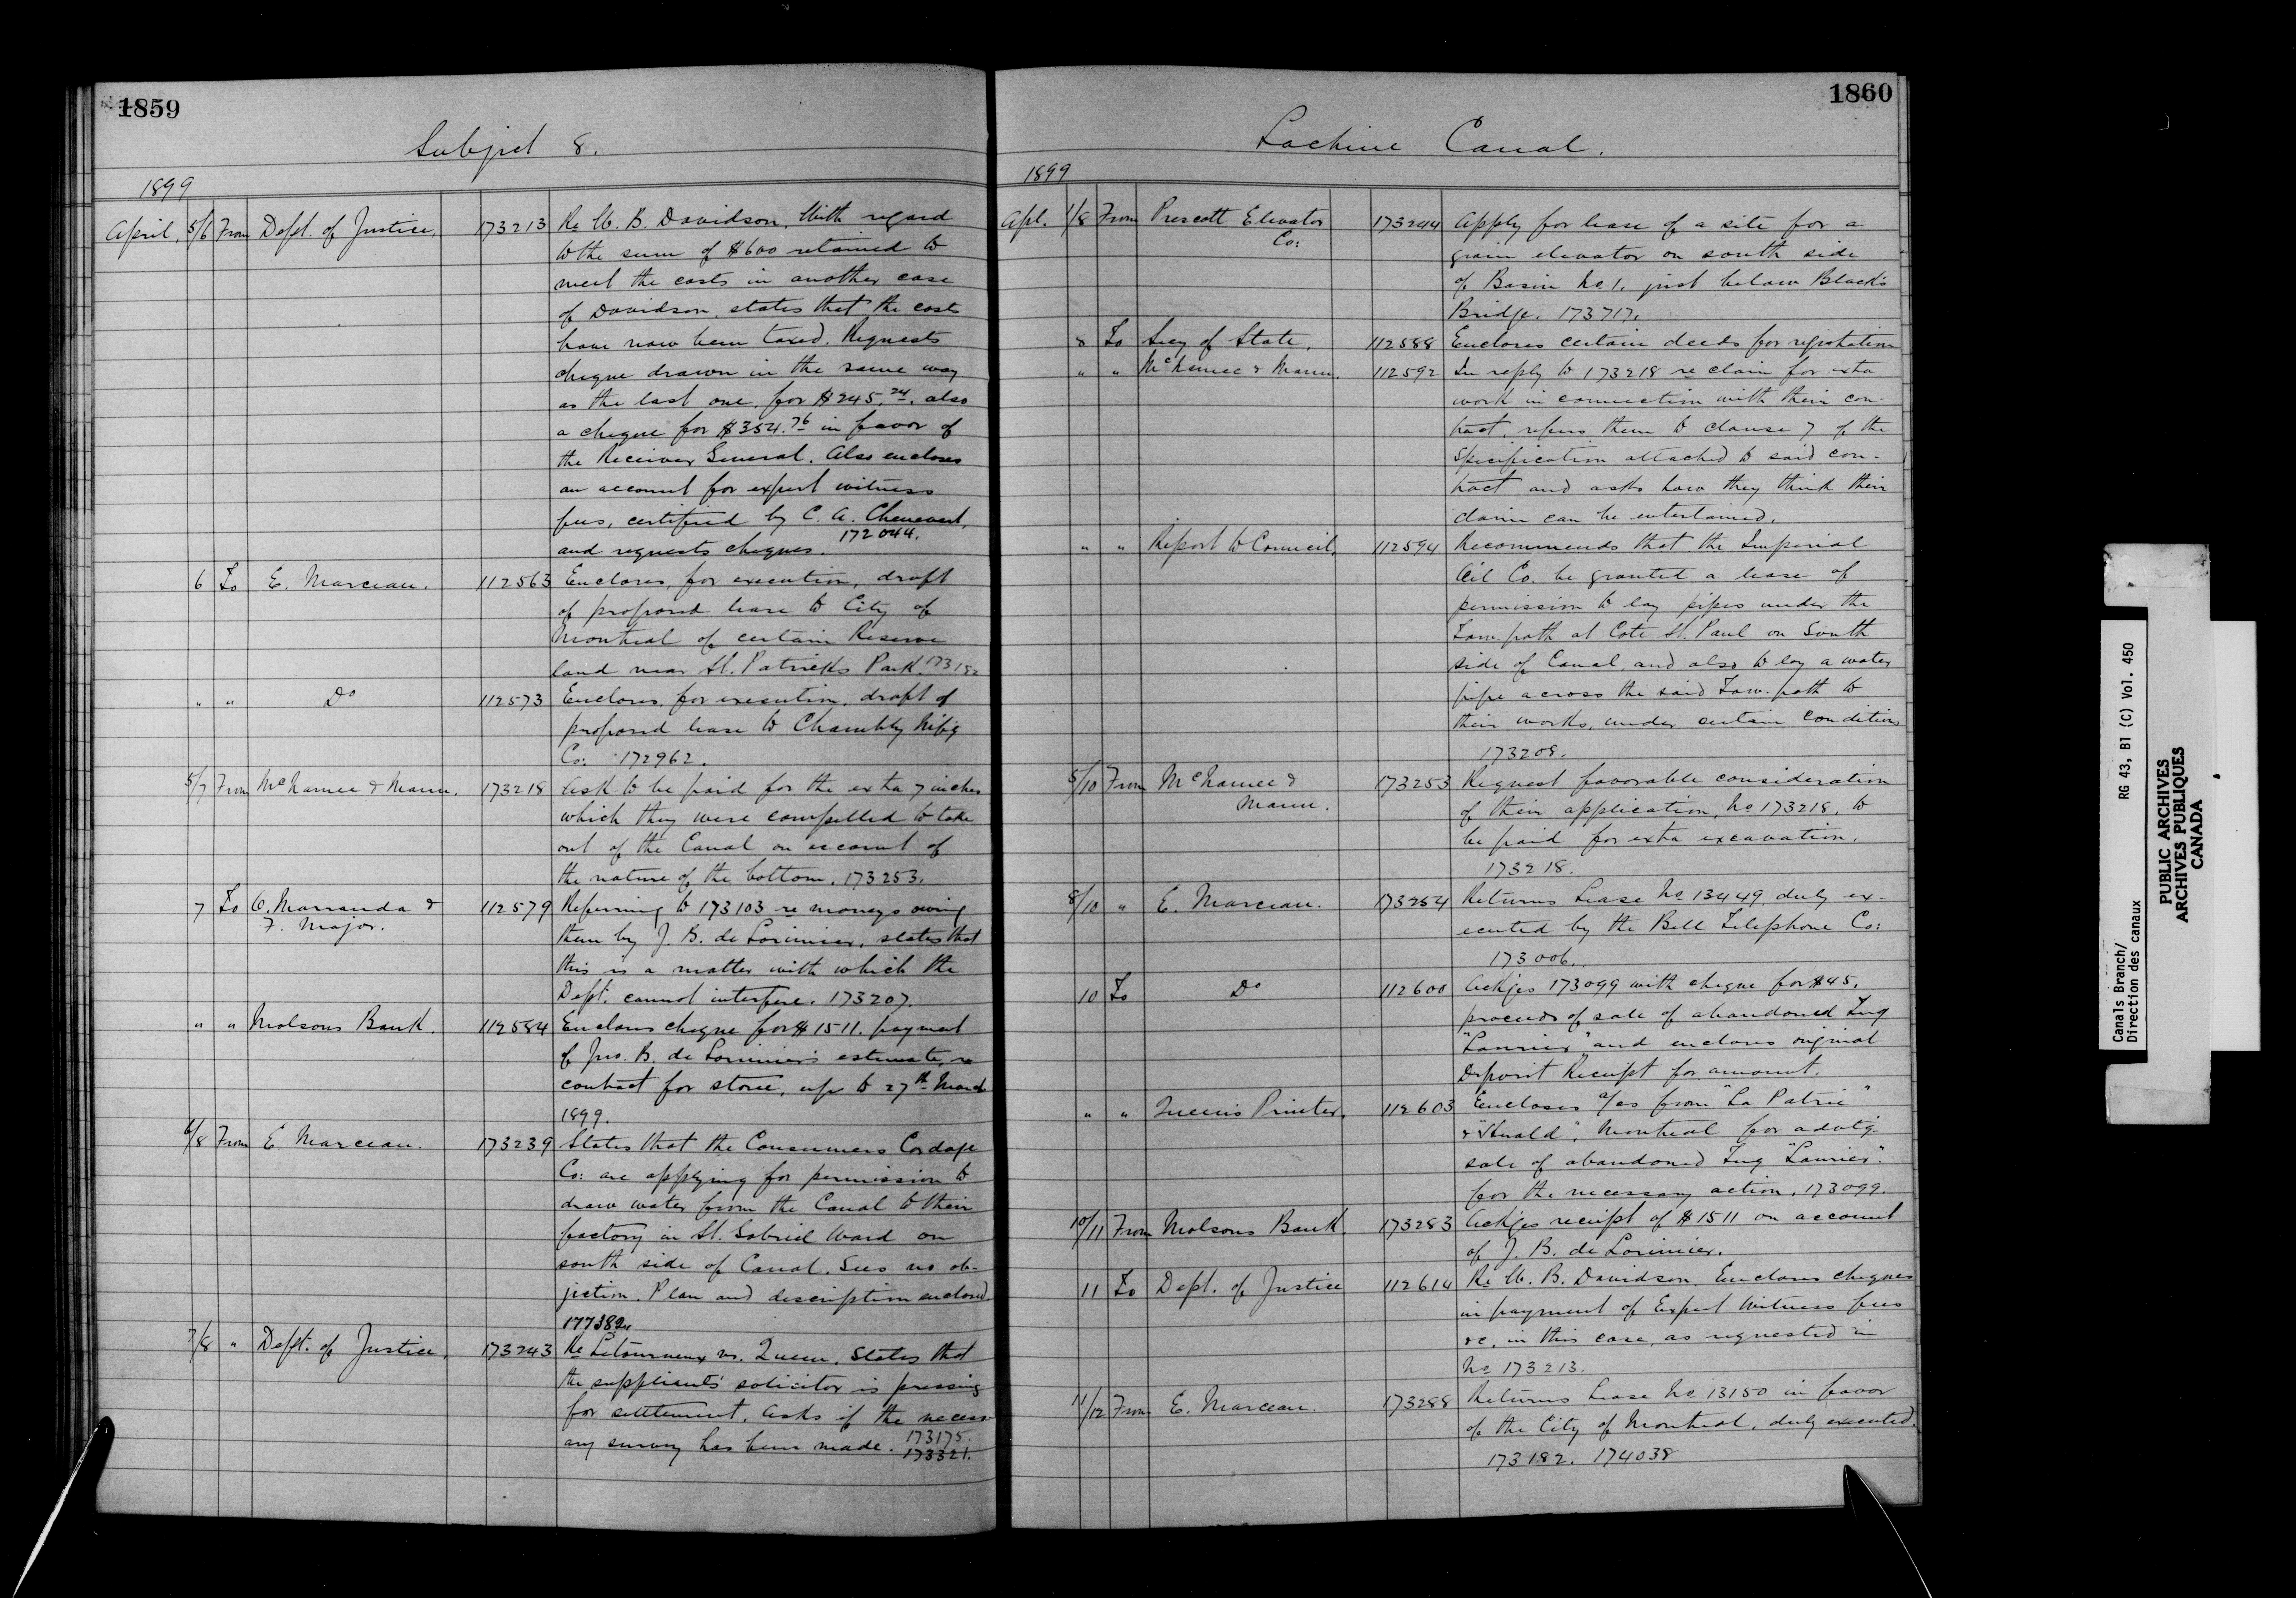 1859
Subject 8.
1899
April, 5/6 From Dept. of Justice, 173213 Re W. B. Davidson. With regard
to the sum of $600 retained to
meet the costs in another case
of Davidson, states that the costs
have now been taxed. Requests
cheque drawn in the same way
as the last one, for $245.24, also
a cheque for $354.76 in favor of
the Receiver General. Also encloses
an account for expert witness
fees, certified by C. A. Chenevert,
and requests cheques. 172044.
6 To E. Marceau. 112563 Encloses, for execution, draft
of proposed lease to City of
Montreal of certain Reserve
land near St. Patricks Park. 173182
" " Do 112573 Encloses, for execution, draft of
proposed lease to Chambly Mfg
Co: 172962.
5/7 From McNamee & Mann. 173218 Ask to be paid for the exta 7 inches
which they were compelled to take
out of the Canal on account of
the nature of the bottom. 173253.
7 To O. Marranda & 112579 Referring to 173103 re moneys owing
F. Major.
them by J. B. de Lorimier, states that
this is a matter with which the
Dept. cannot interfere. 173207.
" " Molsons Bank. 112584 Encloses cheque for $1511. payment
of Jno. B. de Lorimier's estimate re
contract for stone, up to 27th March
1899.
6/8 From E. Marceau. 173239 States that the Consumers Cordage
Co: are applying for permission to
draw water from the Canal to their
factory in St. Gabriel Ward on
south side of Canal. Sees no ob-
jection. Plan and description enclosed.
177382
7/8 " Dept. of Justice, 173243 Re Letourneux vs. Queen. States that
the suppliants' solicitor is pressing
for settlement. Asks if the necess-
ary survey has been made. 173175.
173321.
1860
Lachine Canal.
1899
Apl. 1/8 From Prescott Elevator 173244 Apply for lease of a site for a
Co:
grain elevator on south side
of Basin No. 1, just below Black's
Bridge. 173717.
8 To Secy of State. 112588 Encloses certain deeds for registration
" " McNamee & Mann. 112592 In reply to 173218 re claim for exta
work in connection with their con-
tract, refers them to clause 7 of the
Specification attached to said con-
tract and asks how they think their
claim can be entertained.
" " Report to Council, 112594 Recommends that the Imperial
Oil Co. be granted a lease of
permission to lay pipes under the
Tow-path at Cote St. Paul on South
side of Canal, and also to lay a water
pipe across the said Tow-path to
their works, under certain conditions
173208.
5/10 From McNamee & 173253 Request favorable consideration
Mann.
of their application, No 173218, to
be paid for exta excavation.
173218.
8/10 " E. Marceau. 173254 Returns Lease No 13449 duly ex-
ecuted by the Bell Telephone Co:
173006.
10 To Do 112600 Ackges 173099 with cheque for $45,
proceeds of sale of abandoned Tug
"Laurier" and encloses original
Deposit Receipt for amount.
" " Queens Printer, 112603 Encloses a/cs from "La Patrie"
& "Herald", Montreal for advtg.
sale of abandoned Tug "Laurier".
for the necessary action. 173099.
10/11 From Molsons Bank. 173283 Ackges receipt of $1511 on account
of J. B. de Lorimier.
11 To Dept. of Justice 112614 Re W. B. Davidson. Encloses cheques
in payment of Expert Witness fees
&c. in this case, as requested in
No 173213.
11/12 From E. Marceau. 173288 Returns Lease No 13150 in favor
of the City of Montreal, duly executed.
173182. 174038
Canals Branch/
Direction des canaux
RG 43, B1 (C) Vol. 450
PUBLIC ARCHIVES
ARCHIVES PUBLIQUES
CANADA